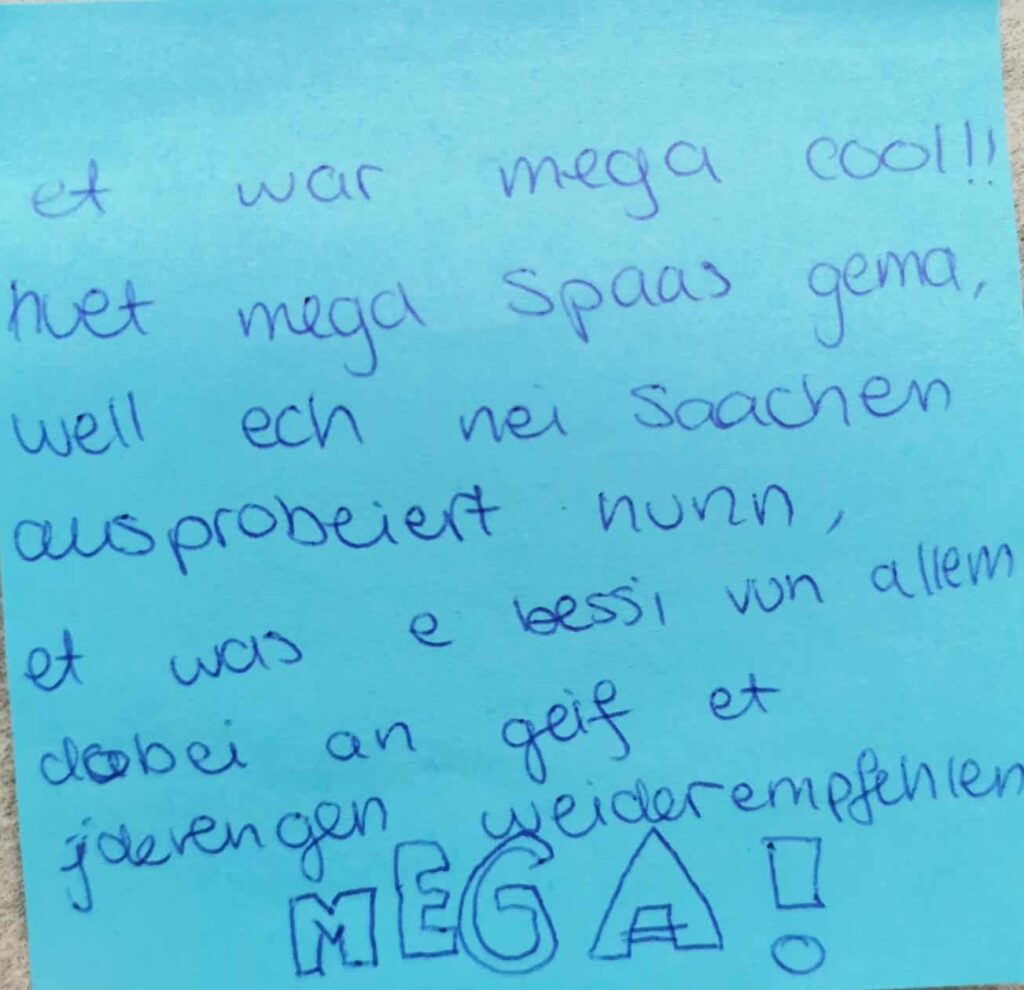 et war mega cool!!
huet mega Spaas gema,
well ech nei Saachen
ausprobeiert hunn,
et was e bessi vun allem
dobei an geif et
jderengen weiderempfehlen
MEGA!